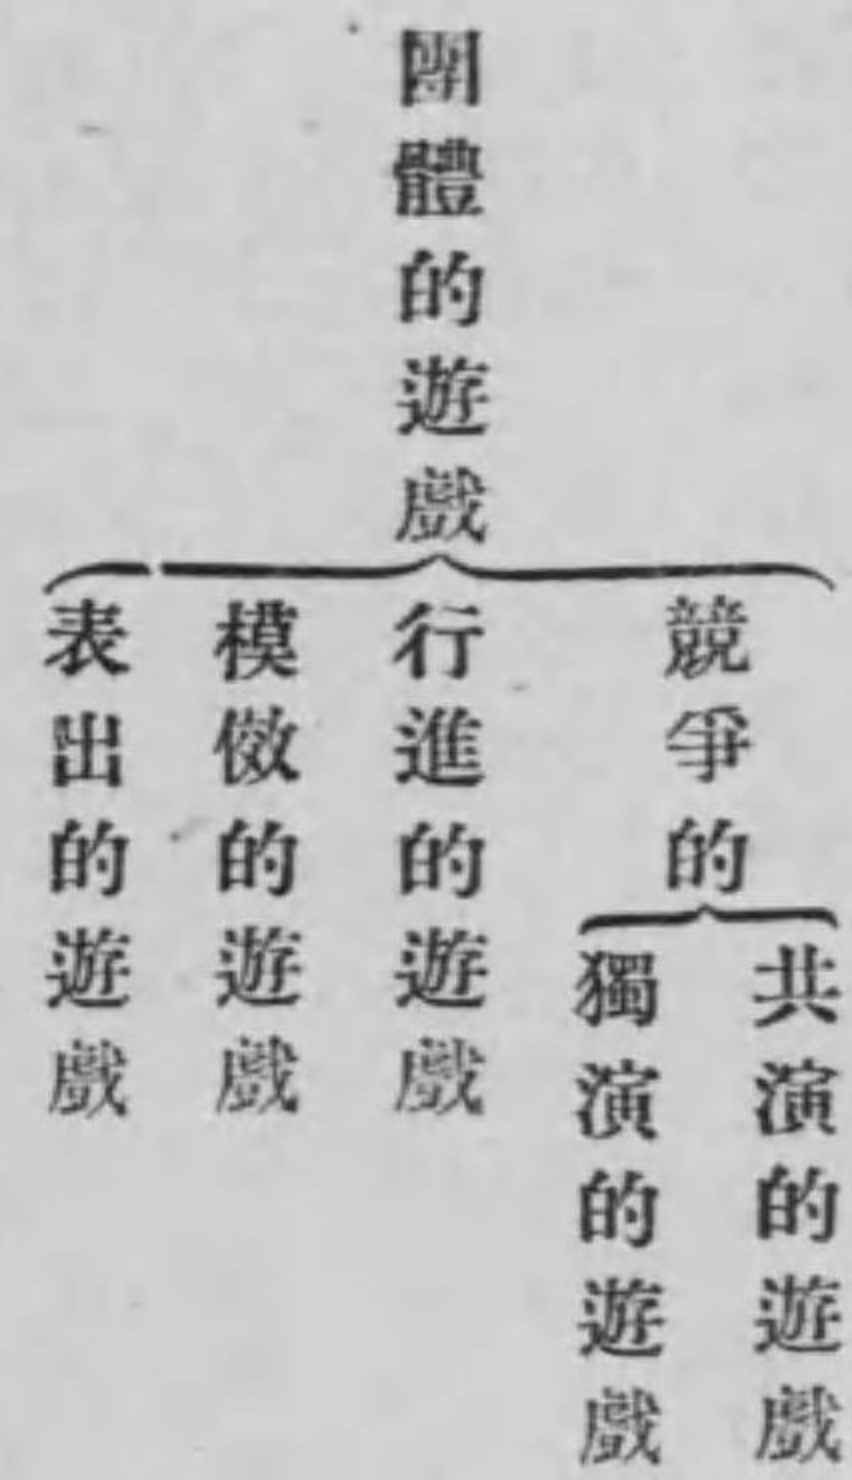 團體的遊戲
競爭的
共演的遊戲
獨演的遊戲
行進的遊戲
模倣的遊戲
表出的遊戲